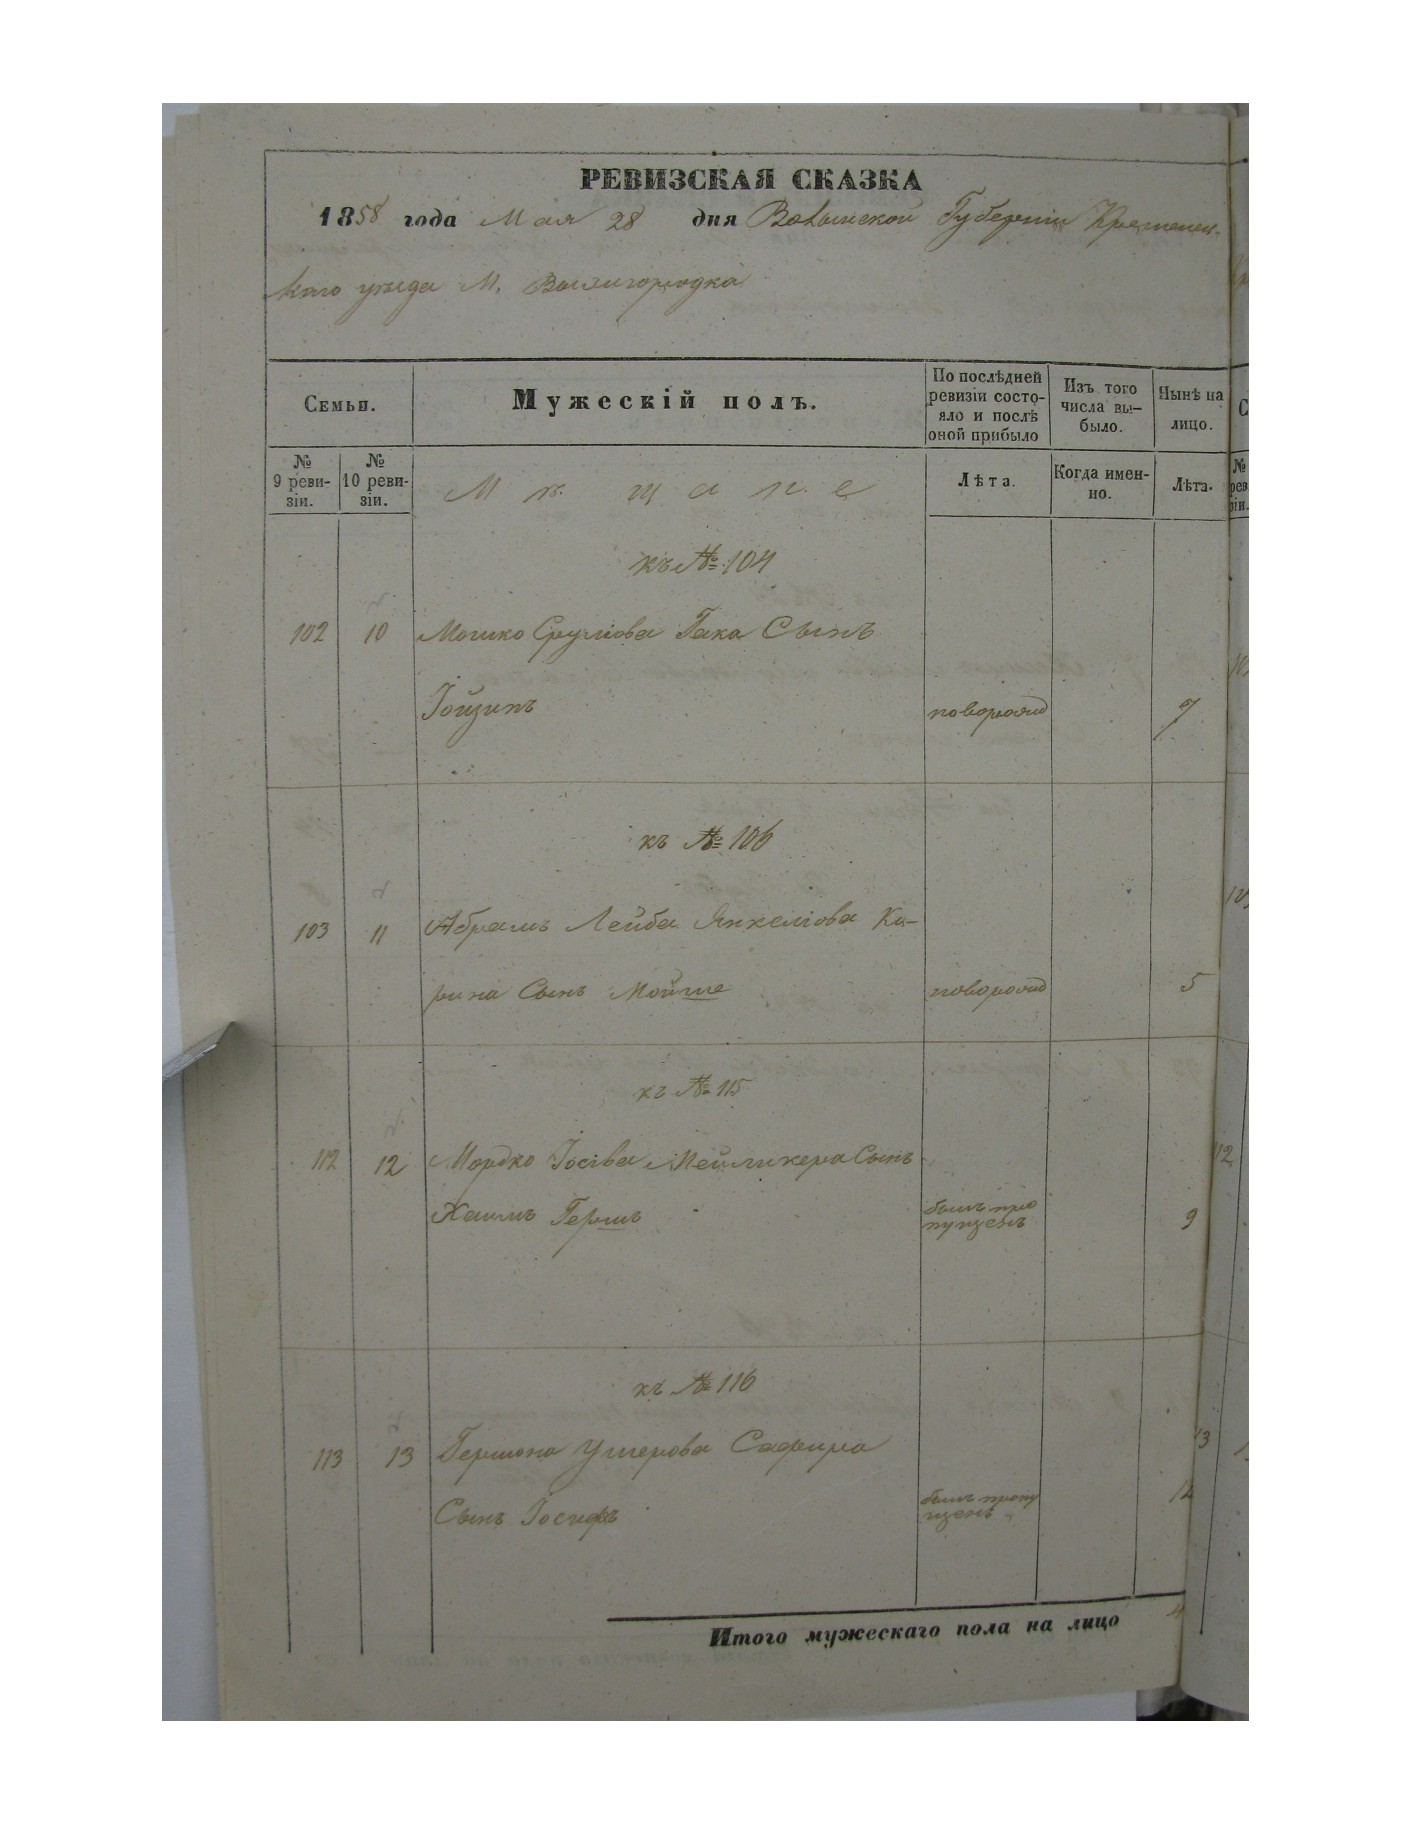 РЕВИЗСКАЯ СКАЗКА
1858 года Мая 28 дня Волынской Губерніи Кременец-
каго уѣзда М. Вышгородка
Семьи.
Мужескій полъ.
По послѣдней ревизіи состо-яло и послѣ оной прибыло
Изъ того числа вы-было.
Нынѣ на лицо.
№ 9 реви-зіи.
№ 10 реви-зіи.
Мѣщане
Лѣта.
Когда имен-но.
Лѣта.
къ № 104
102 10 Мошко Сруліова Гака Сынъ
Іойзипъ новорожд 7
къ № 106
103 11 Абрамъ Лейба Янкеліова Ка-
рина Сынъ Мойше новорожд 5
къ № 115
112 12 Мордко Іосіва Мейлихера Сынъ
Хаимъ Гершъ былъ про
пущенъ 9
къ № 116
113 13 Гершона Ушерова Сафира
Сынъ Іосифъ былъ пропу
щенъ 12
Итого мужескаго пола на лицо 4